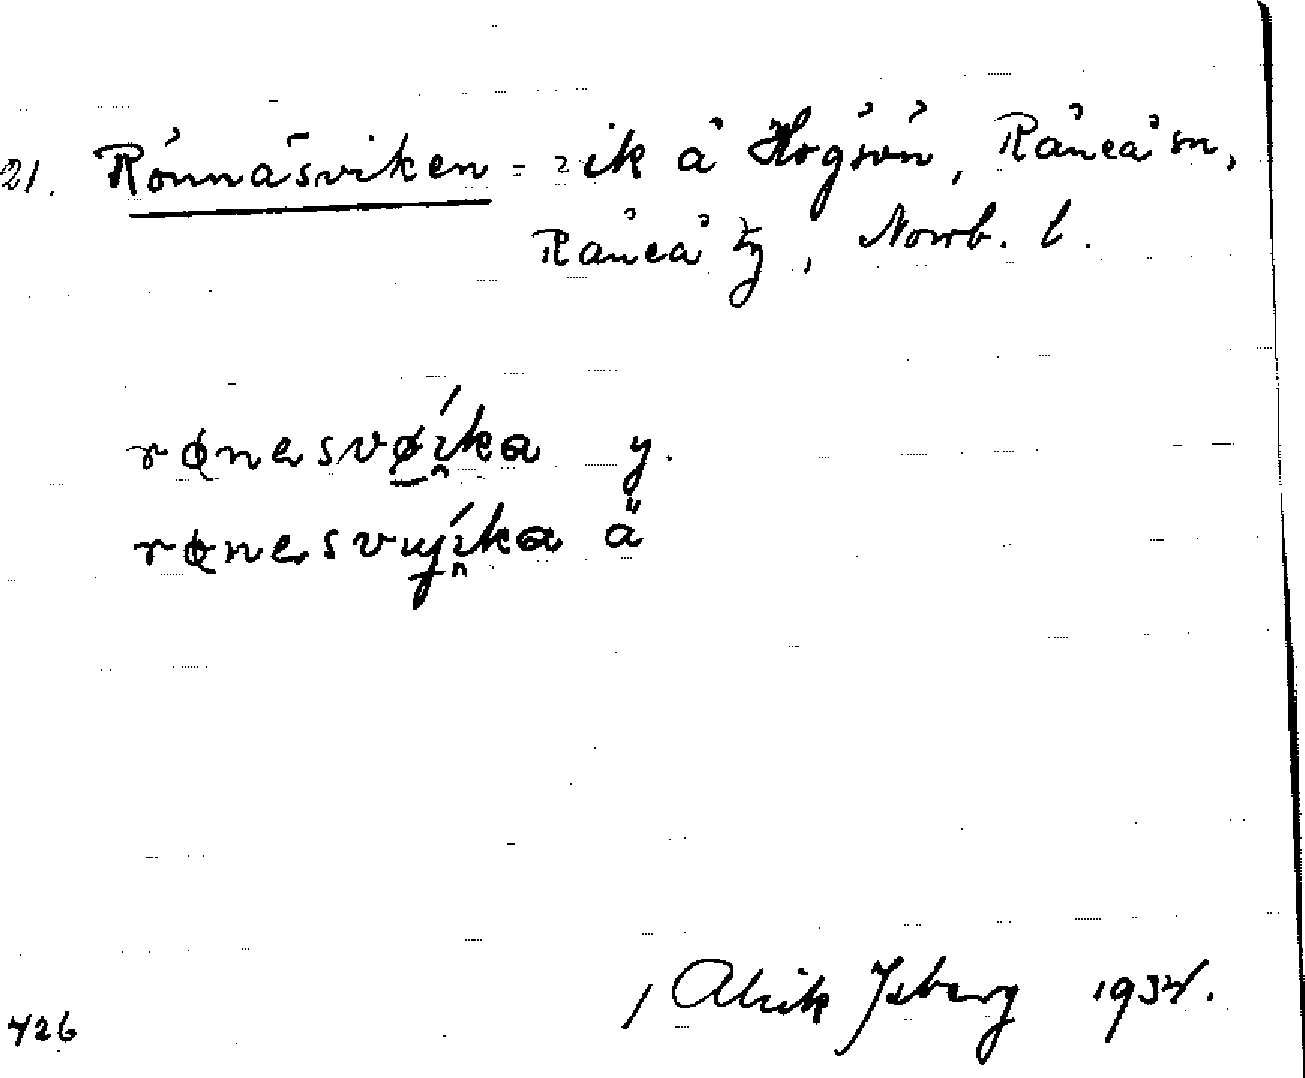 21. Rönnäsviken = vik å Högsön, Råneå sn,
Råneå tg, Norrb. l.
rønesvøika y.
rønesvɯika ä
Alrik Isberg 1934.
426